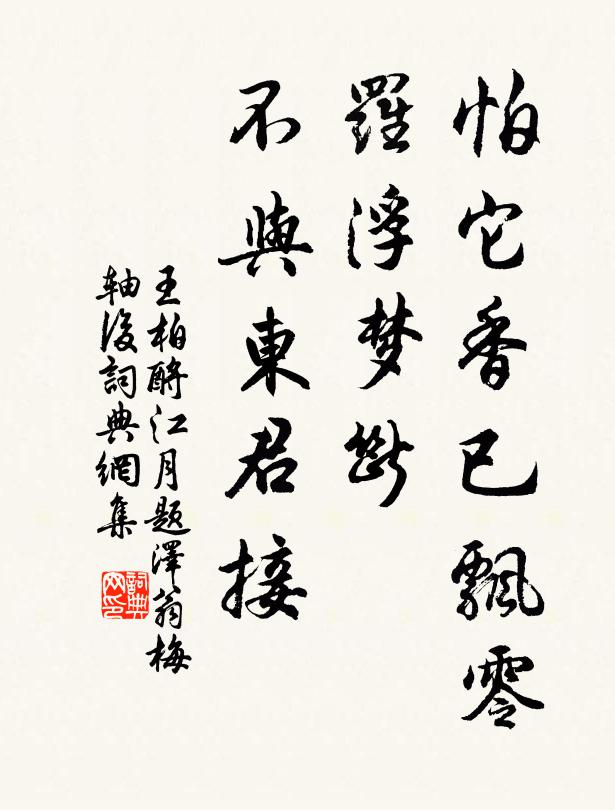 怕它香已飄零
羅浮梦断
不與東君接
王柏酹江月题澤翁梅
軸後詞典網集
詞典网印